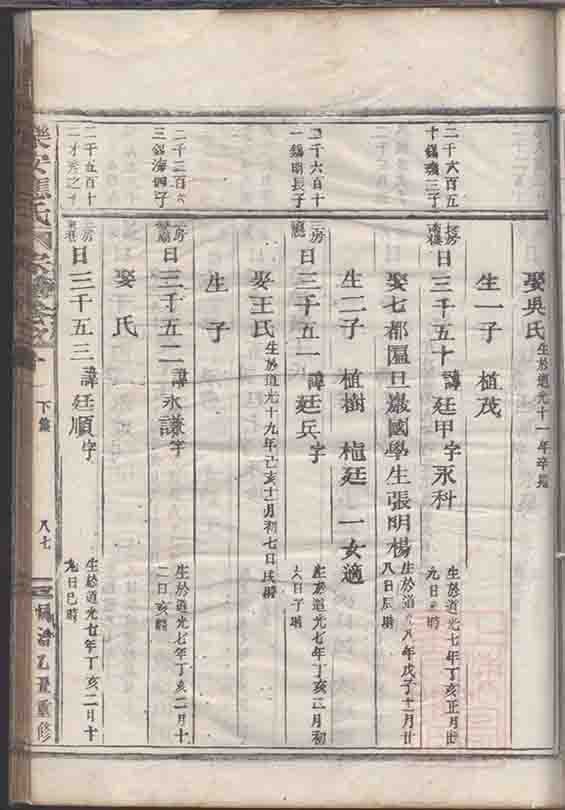 娶吳氏 生於道光十一年卒
生一子 植茂
二千六百五
十錫璣三子
日三千五十 諱廷甲字永科 生於道光七年丁亥正月廿
九日 時
娶七都匾旦巖國學生張明楊 生於道光八年戊子十一月廿
八日辰時
生二子 植樹 植廷 一女適
二千六百十
一錫明長子
三房
日三千五一 諱廷兵字 生於道光七年丁亥二月初
六日子時
娶王氏 生於道光十九年己亥十一月初七日戌時
生 子
三錫海四子
房
日三千五二 諱永謙字 生於道光七年丁亥二月十
二日亥時
娶 氏
二千五百十
二才秀之子
三房
日三千五三 諱廷順字 生於道光七年丁亥二月十
九日巳時
樂安
下集
八七
同治乙丑重修